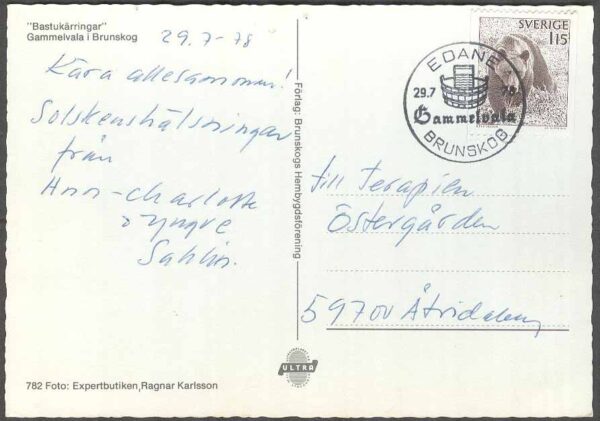 "Bastukärringar"
Gammelvala i Brunskog
29.7-78
Kära allesammom!
Solskenshälsningar
från
Ann-Charlotte
o Yngve
Sahlin.
782 Foto: Expertbutiken, Ragnar Karlsson
Förlag: Brunskogs Hembygdsförening
ULTRA
SVERIGE
115
EDANE
29.7 78
Gammelvala
BRUNSKOG
till Terapien
Östergården
59700 Åtvidaberg